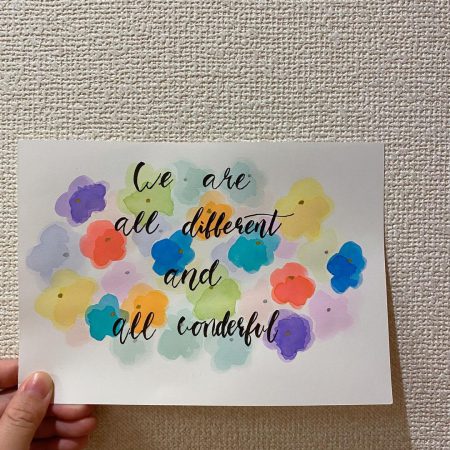 We are
all different
and
all wonderful